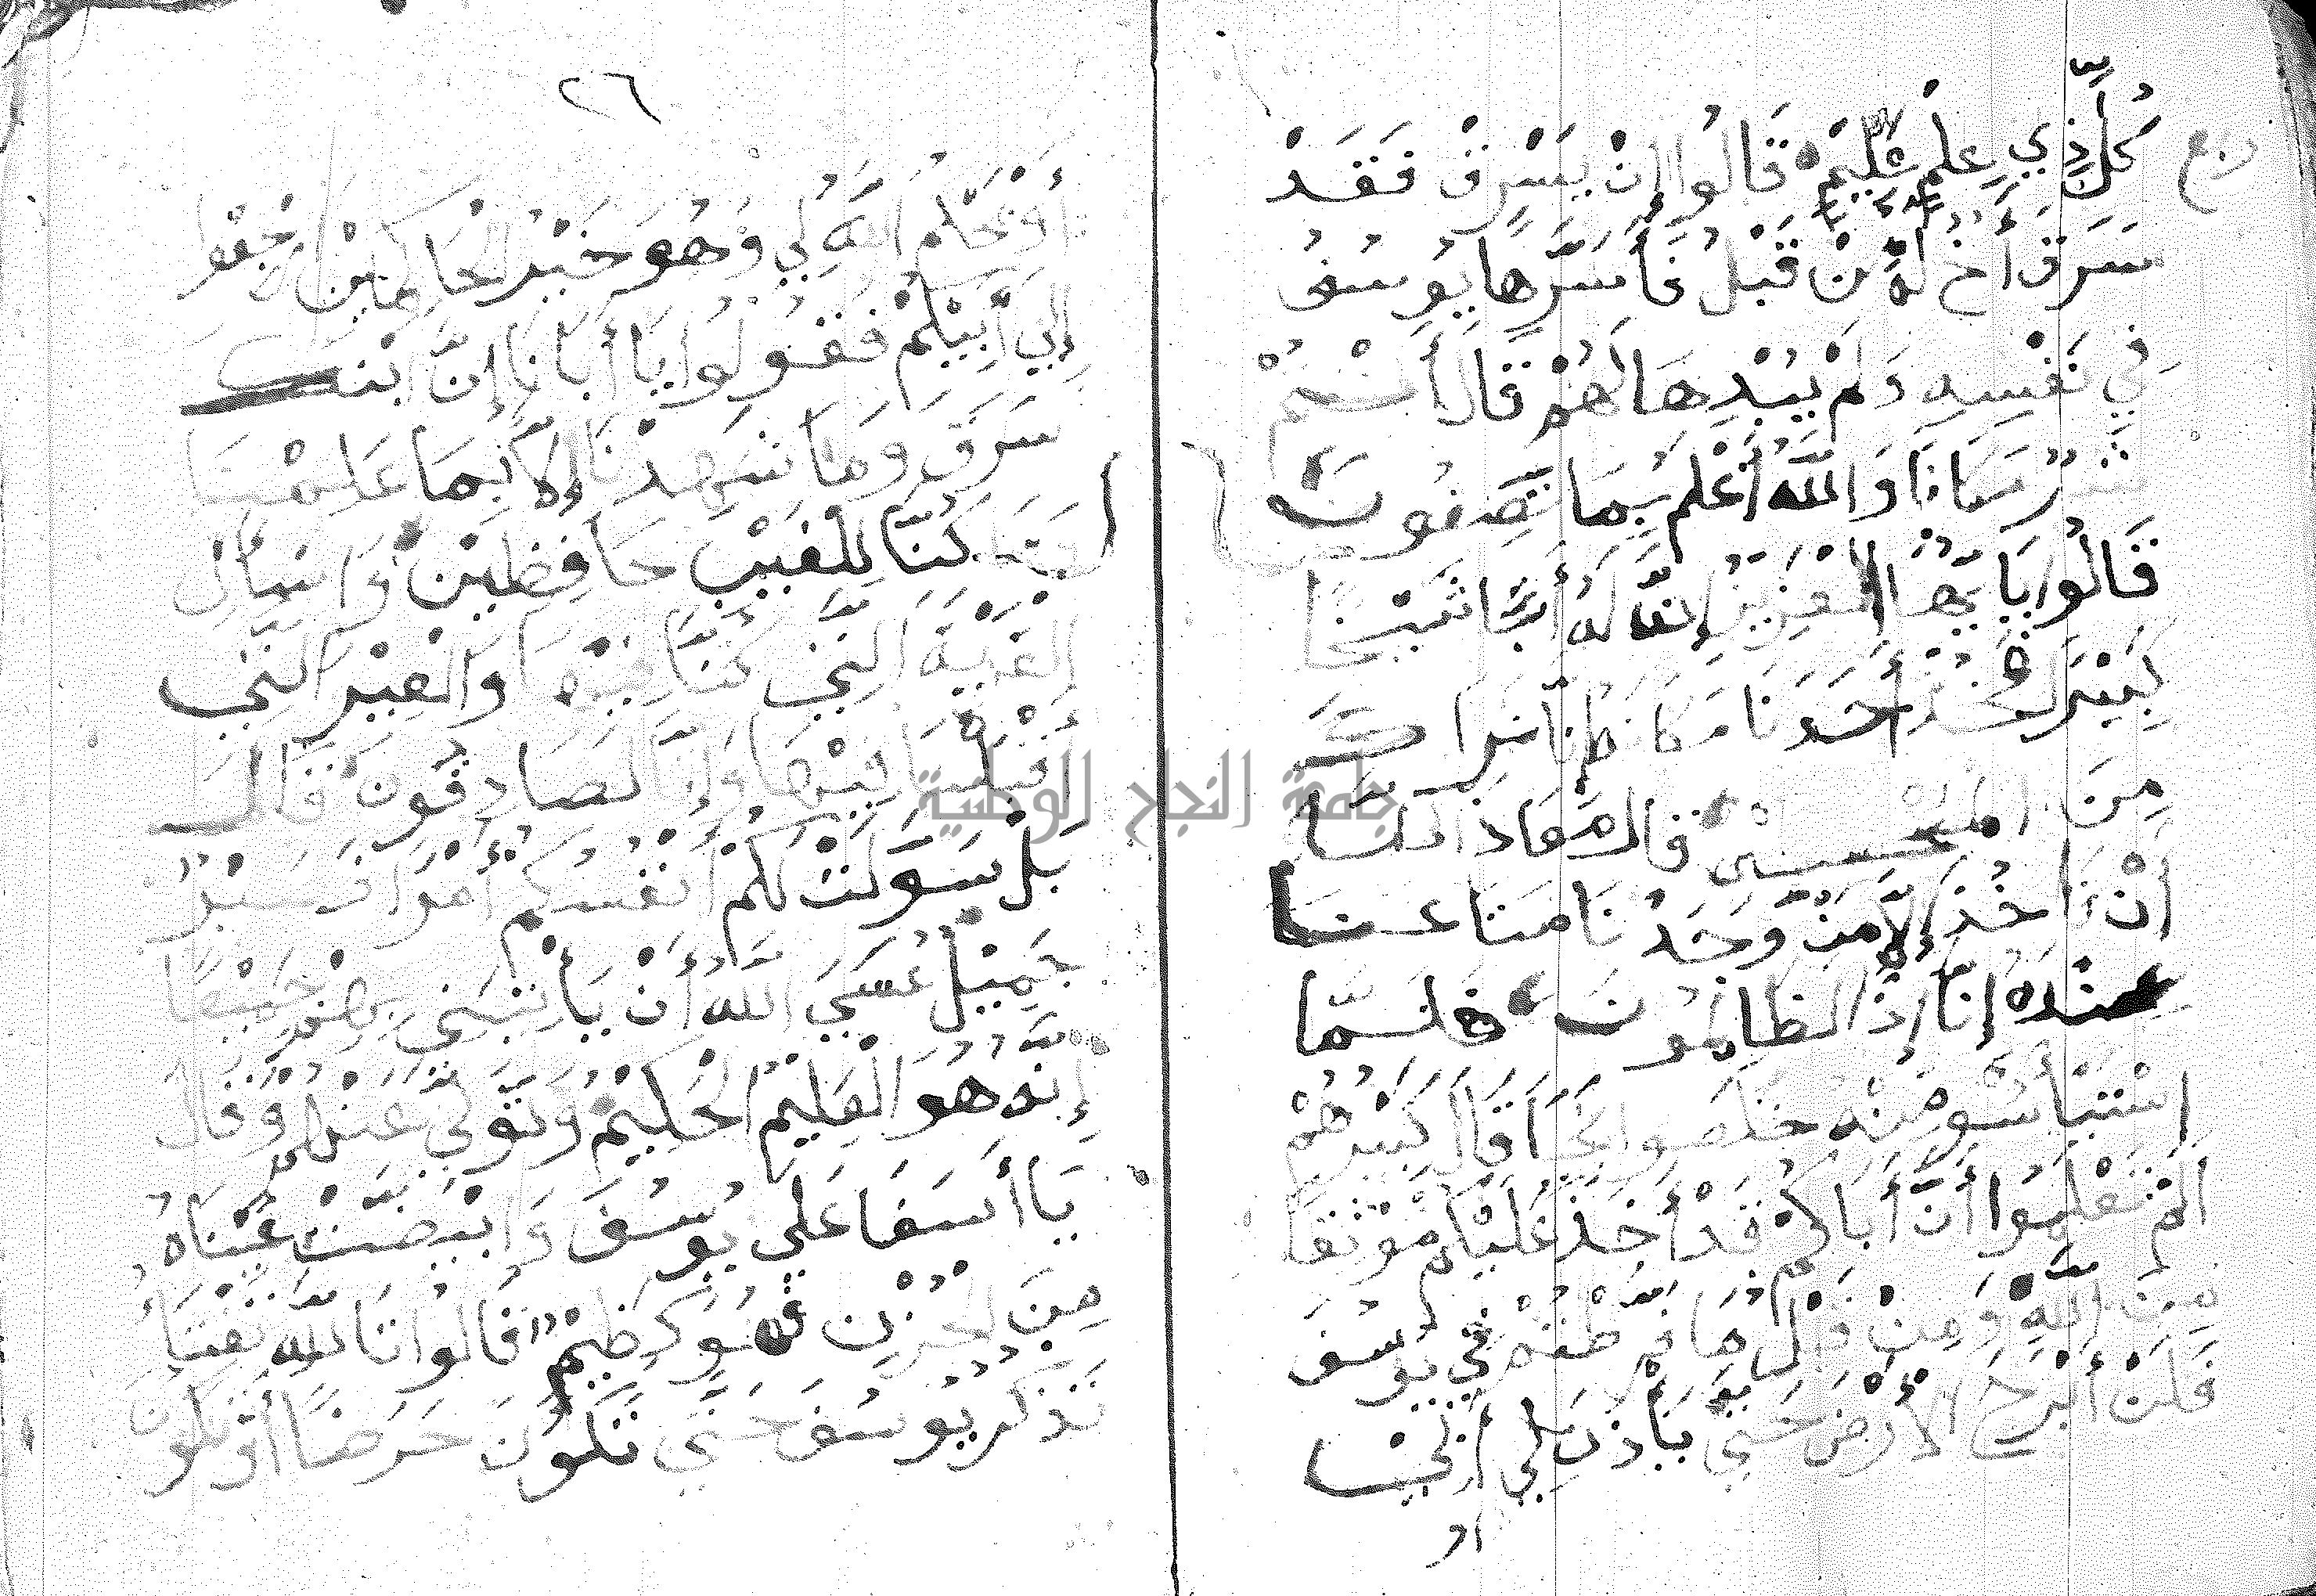 ربع
كُلِّ ذِي عِلْمٍ عَلِيْمٌ قَالُوا إِنْ يَسْرِقْ فَقَدْ
سَرَقَ أَخٌ لَهُ مِنْ قَبْلُ فَأَسَرَّهَا يُوسُفُ
فِي نَفْسِهِ وَلَمْ يُبْدِهَا لَهُمْ قَالَ أَنْتُمْ
شَرٌّ مَكَانًا وَاللَّهُ أَعْلَمُ بِمَا تَصِفُونَ
قَالُوا يَا أَيُّهَا الْعَزِيْزُ إِنَّ لَهُ أَبًا شَيْخًا
كَبِيْرًا فَخُذْ أَحَدَنَا مَكَانَهُ إِنَّا نَرَاكَ
مِنَ الْمُحْسِنِيْنَ قَالَ مَعَاذَ اللَّهِ
أَنْ نَأْخُذَ إِلَّا مَنْ وَجَدْنَا مَتَاعَنَا
عِنْدَهُ إِنَّا إِذًا لَظَالِمُونَ فَلَمَّا
اسْتَيْأَسُو مِنْهُ خَلَصُوا نَجِيًّا قَالَ كَبِيْرُهُمْ
أَلَمْ تَعْلَمُوا أَنَّ أَبَاكُمْ قَدْ أَخَذَ عَلَيْكُمْ مَوْثِقًا
مِنَ اللَّهِ وَمِنْ قَبْلُ مَا فَرَّطْتُمْ فِي يُوسُفَ
فَلَنْ أَبْرَحَ الأَرْضَ حَتَّى يَأْذَنَ لِي أَبِي
او
٢٦
أَوْ يَحْكُمَ اللَّهُ لِي وَهُوَ خَيْرُ الْحَاكِمِيْنَ ارْجِعُوا
إِلَى أَبِيْكُمْ فَقُولُوا يَا أَبَانَا إِنَّ ابْنَكَ
سَرَقَ وَمَا شَهِدْنَا إِلاَّ بِمَا عَلِمْنَا
وَمَا كُنَّا لِلْغَيْبِ حَافِظِيْنَ وَاسْأَلِ
الْقَرْيَةَ الَّتِي كُنَّا فِيْهَا وَالْعِيْرَ الَّتِي
أَقْبَلْنَا فِيْهَا وَإِنَّا لَصَادِقُونَ قَالَ
بَلْ سَوَّلَتْ لَكُمْ أَنْفُسُكُمْ أَمْرًا فَصَبْرٌ
جَمِيْلٌ عَسَى اللَّهُ أَنْ يَأْتِيَنِي بِهِمْ جَمِيْعًا
إِنَّهُ هُوَ الْعَلِيْمُ الْحَكِيْمُ وَتَوَلَّى عَنْهُمْ وَقَالَ
يَا أَسَفَا عَلَى يُوسُفَ وَابْيَضَّتْ عَيْنَاهُ
مِنَ الْحُزْنِ فَهُوَ كَظِيْمٌ قَالُوا تَاللَّهِ تَفْتَأُ
تَذْكُرُ يُوسُفَ حَتَّى تَكُونَ حَرَضًا أَوْ تَكُونَ
جامعة النجاح الوطنية